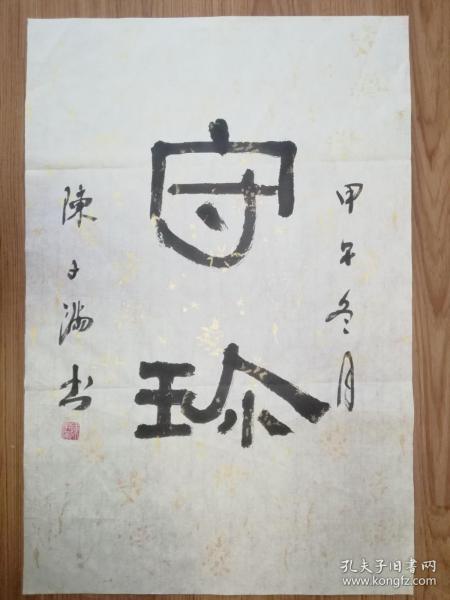 甲午冬月
守珍
陳子满书
孔夫子旧书网
www.kongfz.com